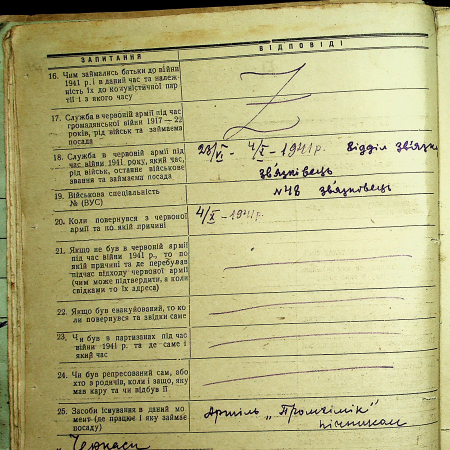 ЗАПИТАННЯ
ВІДПОВІДІ
16. Чим займались батьки до війни
1941 р. і в даний час та належ-
ність їх до комуністичної пар-
тії і з якого часу
17. Служба в червоній армії під час
громадянської війни 1917 — 22
років, рід військ та займаєма
посада
18. Служба в червоній армії під
час війни 1941 року, який час,
рід військ, останнє військове
звання та займаєма посада
28/VI - 4/X - 1941 р. Відділ звязк
зв'язківець
19. Військова спеціяльність
№ (ВУС)
№ 48 звязківець
20. Коли повернувся з червоної
армії та по якій причині
4/X - 1941 р.
21. Якщо не був в червоній армії
під час війни 1941 р., то по
якій причині та де перебував
підчас відходу червоної армії
(чим може підтвердити, а коли
свідками то їх адреса)
22. Якщо був евакуйований, то ко-
ли повернувся та звідки саме
23. Чи був в партизанах під час
війни 1941 р. та де саме і
який час
24. Чи був репресований сам, або
хто з родичів, коли і защо, яку
мав кару та чи відбув її
25. Засоби існування в даний мо-
мент (де працює і яку займає
посаду)
Артіль „Промхімік"
пічником
Черкаси